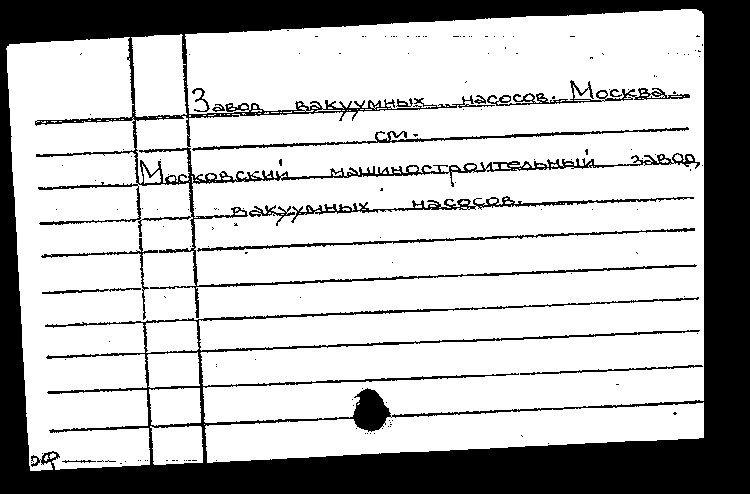 Завод вакуумных насосов. Москва.
см.
Московский машиностроительный завод
вакуумных насосов.
эф